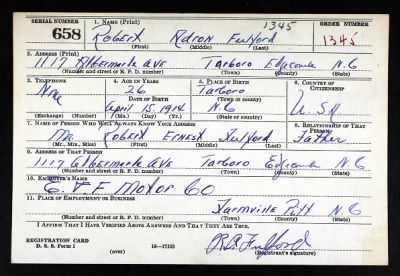 SERIAL NUMBER 1. NAME (Print) 1345 ORDER NUMBER
658 ROBERT Fulford 1345
(First) (Middle) (Last)
2. ADDRESS (Print)
1117 Albermarle AVE Tarboro Edgecombe N.C
(Number and street or R. F. D. number) (Town) (County) (State)
3. TELEPHONE 4. AGE IN YEARS 5. PLACE OF BIRTH 6. COUNTRY OF CITIZENSHIP
None 26 Tarboro
DATE OF BIRTH (Town or county)
April 15, 1914 N.C U.S.A
(Exchange) (Number) (Mo.) (Day) (Yr.) (State or country)
7. NAME OF PERSON WHO WILL ALWAYS KNOW YOUR ADDRESS 8. RELATIONSHIP OF THAT PERSON
Mr. ROBERT ERNEST Fulford Father
(Mr., Mrs., Miss) (First) (Middle) (Last)
9. ADDRESS OF THAT PERSON
1117 Albermarle AVE Tarboro Edgecombe N.C
(Number and street or R. F. D. number) (Town) (County) (State)
10. EMPLOYER'S NAME
Motor Co
11. PLACE OF EMPLOYMENT OR BUSINESS
Farmville Pitt N.C
(Number and street or R. F. D. number) (Town) (County) (State)
I AFFIRM THAT I HAVE VERIFIED ABOVE ANSWERS AND THAT THEY ARE TRUE.
REGISTRATION CARD
D. S. S. Form 1 (over) 16-17105 Fulford
(Registrant's signature)